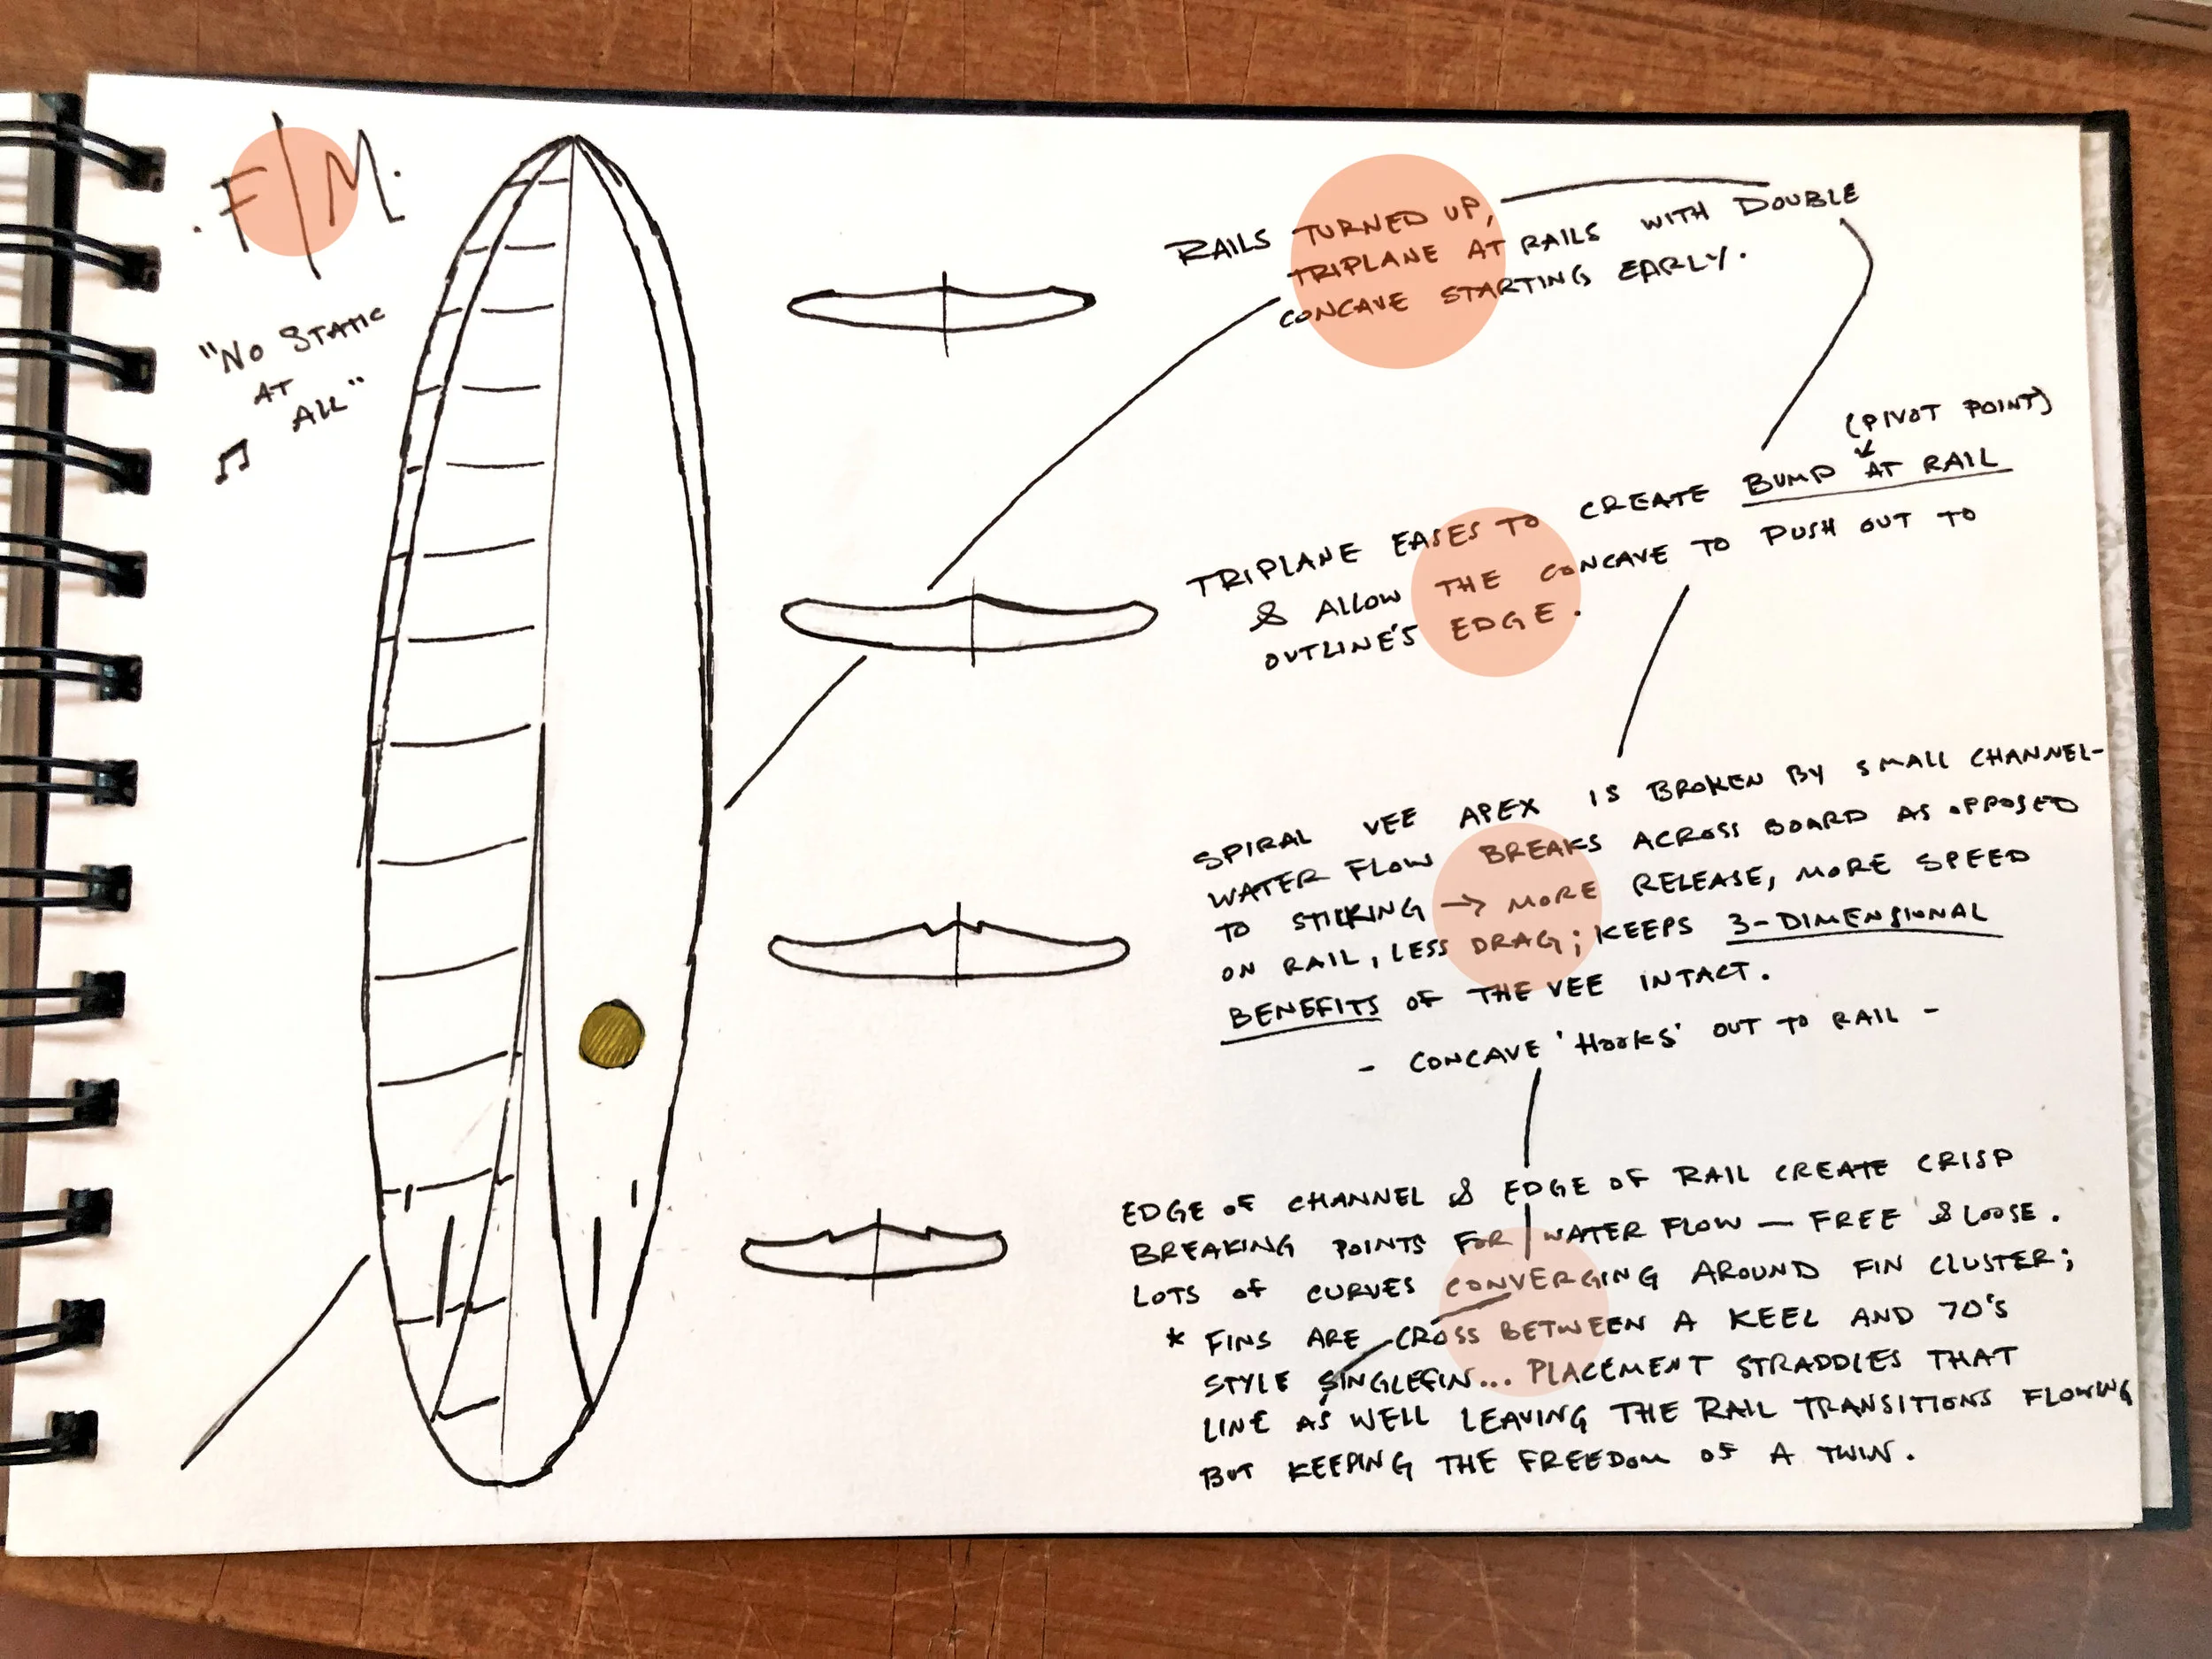 .F/M.
"NO STATIC
AT
ALL"
RAILS TURNED UP,
TRIPLANE AT RAILS WITH DOUBLE
CONCAVE STARTING EARLY.
(PIVOT POINT)
TRIPLANE EASES TO CREATE BUMP AT RAIL
& ALLOW THE CONCAVE TO PUSH OUT TO
OUTLINE'S EDGE.
SPIRAL VEE APEX IS BROKEN BY SMALL CHANNEL-
WATER FLOW BREAKS ACROSS BOARD AS OPPOSED
TO STICKING → MORE RELEASE, MORE SPEED
ON RAIL, LESS DRAG; KEEPS 3-DIMENSIONAL
BENEFITS OF THE VEE INTACT.
- CONCAVE 'HOOKS' OUT TO RAIL -
EDGE OF CHANNEL & EDGE OF RAIL CREATE CRISP
BREAKING POINTS FOR WATER FLOW — FREE & LOOSE.
LOTS OF CURVES CONVERGING AROUND FIN CLUSTER;
* FINS ARE CROSS BETWEEN A KEEL AND 70'S
STYLE SINGLEFIN... PLACEMENT STRADDLES THAT
LINE AS WELL LEAVING THE RAIL TRANSITIONS FLOWING
BUT KEEPING THE FREEDOM OF A TWIN.